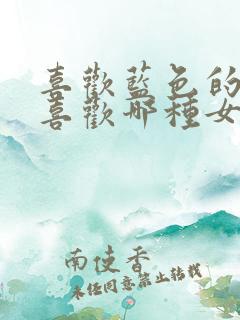 喜歡藍色的
喜歡哪種女
南使香
未經同意禁止轉載